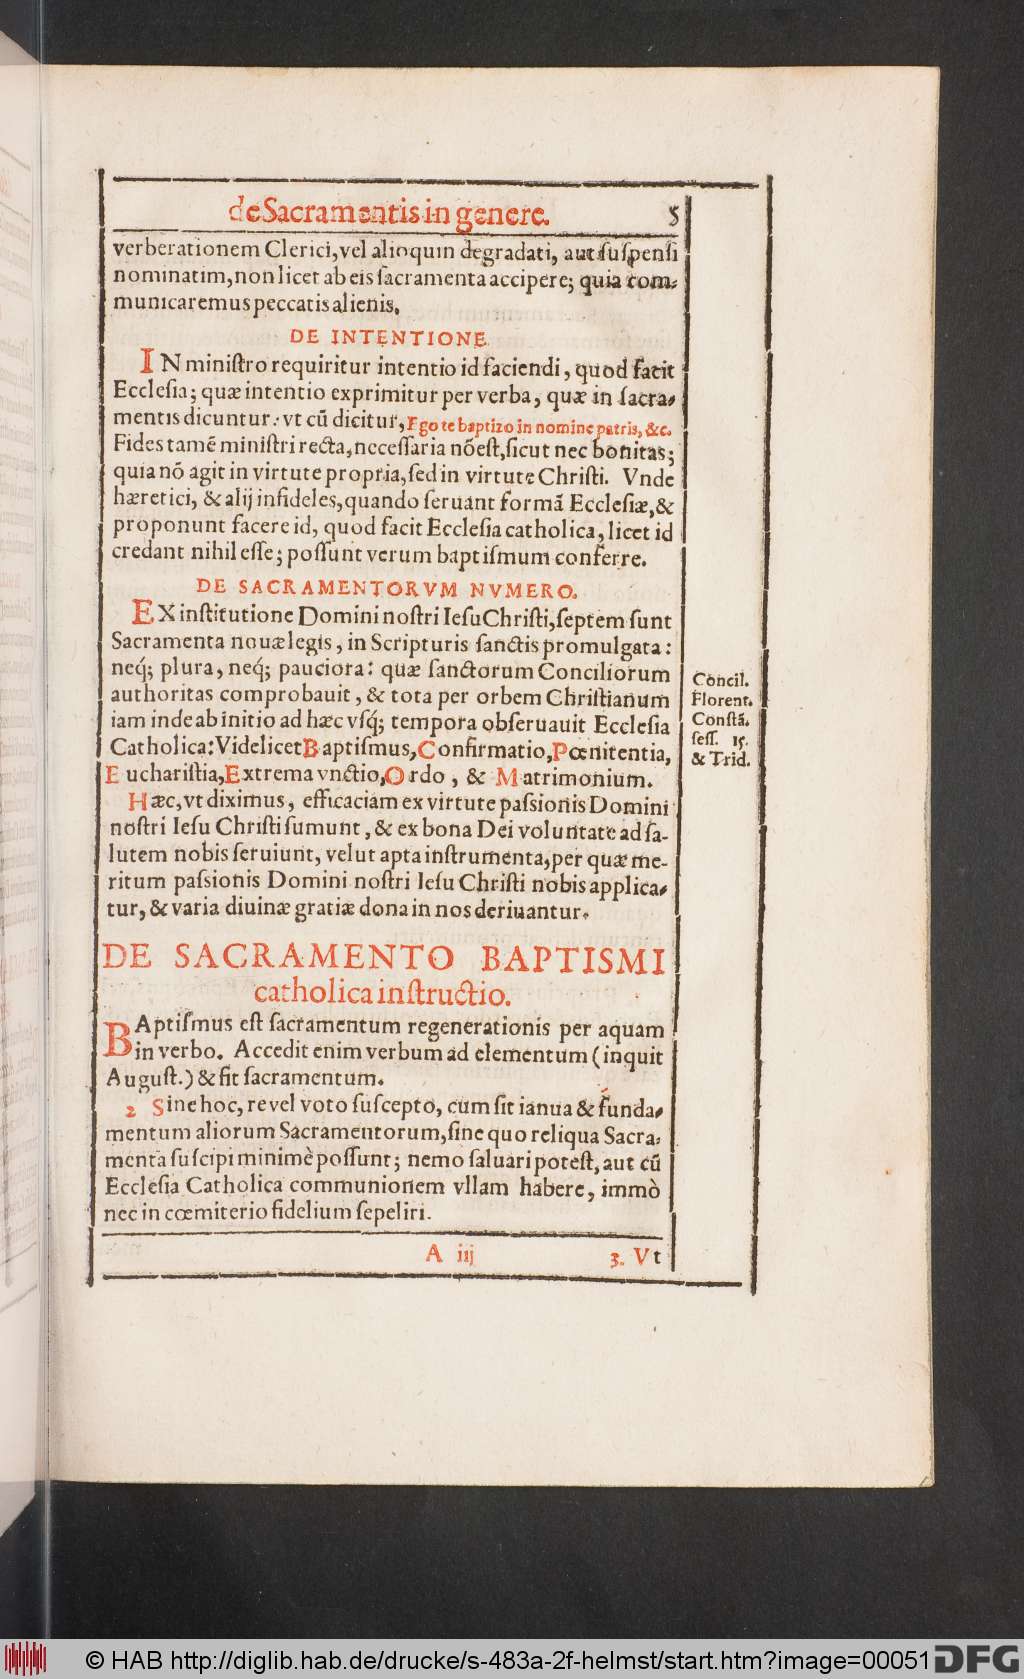 de Sacramentis in genere. 5
verberationem Clerici, vel alioquin degradati, aut suſpenſi
nominatim, non licet ab eis ſacramenta accipere; quia com-
municaremus peccatis alienis.
DE INTENTIONE.
IN miniſtro requiritur intentio id faciendi, quod facit
Eccleſia; quæ intentio exprimitur per verba, quæ in ſacra-
mentis dicuntur: vt cū dicitur, Ego te baptizo in nomine patris, &c.
Fides tamē miniſtri recta, neceſſaria nō eſt, ſicut nec bonitas;
quia nō agit in virtute propria, ſed in virtute Chriſti. Vnde
hæretici, & alij infideles, quando ſeruant formā Eccleſiæ, &
proponunt facere id, quod facit Eccleſia catholica, licet id
credant nihil eſſe; poſſunt verum baptiſmum conferre.
DE SACRAMENTORVM NVMERO.
EX inſtitutione Domini noſtri Ieſu Chriſti, ſeptem ſunt
Sacramenta nouæ legis, in Scripturis ſanctis promulgata:
neq́; plura, neq́; pauciora: quæ ſanctorum Conciliorum
authoritas comprobauit, & tota per orbem Chriſtianum
iam inde ab initio ad hæc vſq́; tempora obſeruauit Eccleſia
Catholica: Videlicet Baptiſmus, Confirmatio, Pœnitentia,
Euchariſtia, Extrema vnctio, Ordo, & Matrimonium.
Concil.
Florent.
Conſtā.
ſeſſ. 15.
& Trid.
Hæc, vt diximus, efficaciam ex virtute paſsionis Domini
noſtri Ieſu Chriſti ſumunt, & ex bona Dei voluntate ad ſa-
lutem nobis ſeruiunt, velut apta inſtrumenta, per quæ me-
ritum paſsionis Domini noſtri Ieſu Chriſti nobis applica-
tur, & varia diuinæ gratiæ dona in nos deriuantur.
DE SACRAMENTO BAPTISMI
catholica inſtructio.
BAptiſmus eſt ſacramentum regenerationis per aquam
in verbo. Accedit enim verbum ad elementum (inquit
Auguſt.) & fit ſacramentum.
2 Sine hoc, re vel voto ſuſcepto, cum ſit ianua & funda-
mentum aliorum Sacramentorum, ſine quo reliqua Sacra-
menta ſuſcipi minimè poſſunt; nemo ſaluari poteſt, aut cū
Eccleſia Catholica communionem vllam habere, immò
nec in cœmiterio fidelium ſepeliri.
A iij 3. Vt
© HAB http://diglib.hab.de/drucke/s-483a-2f-helmst/start.htm?image=00051
DFG